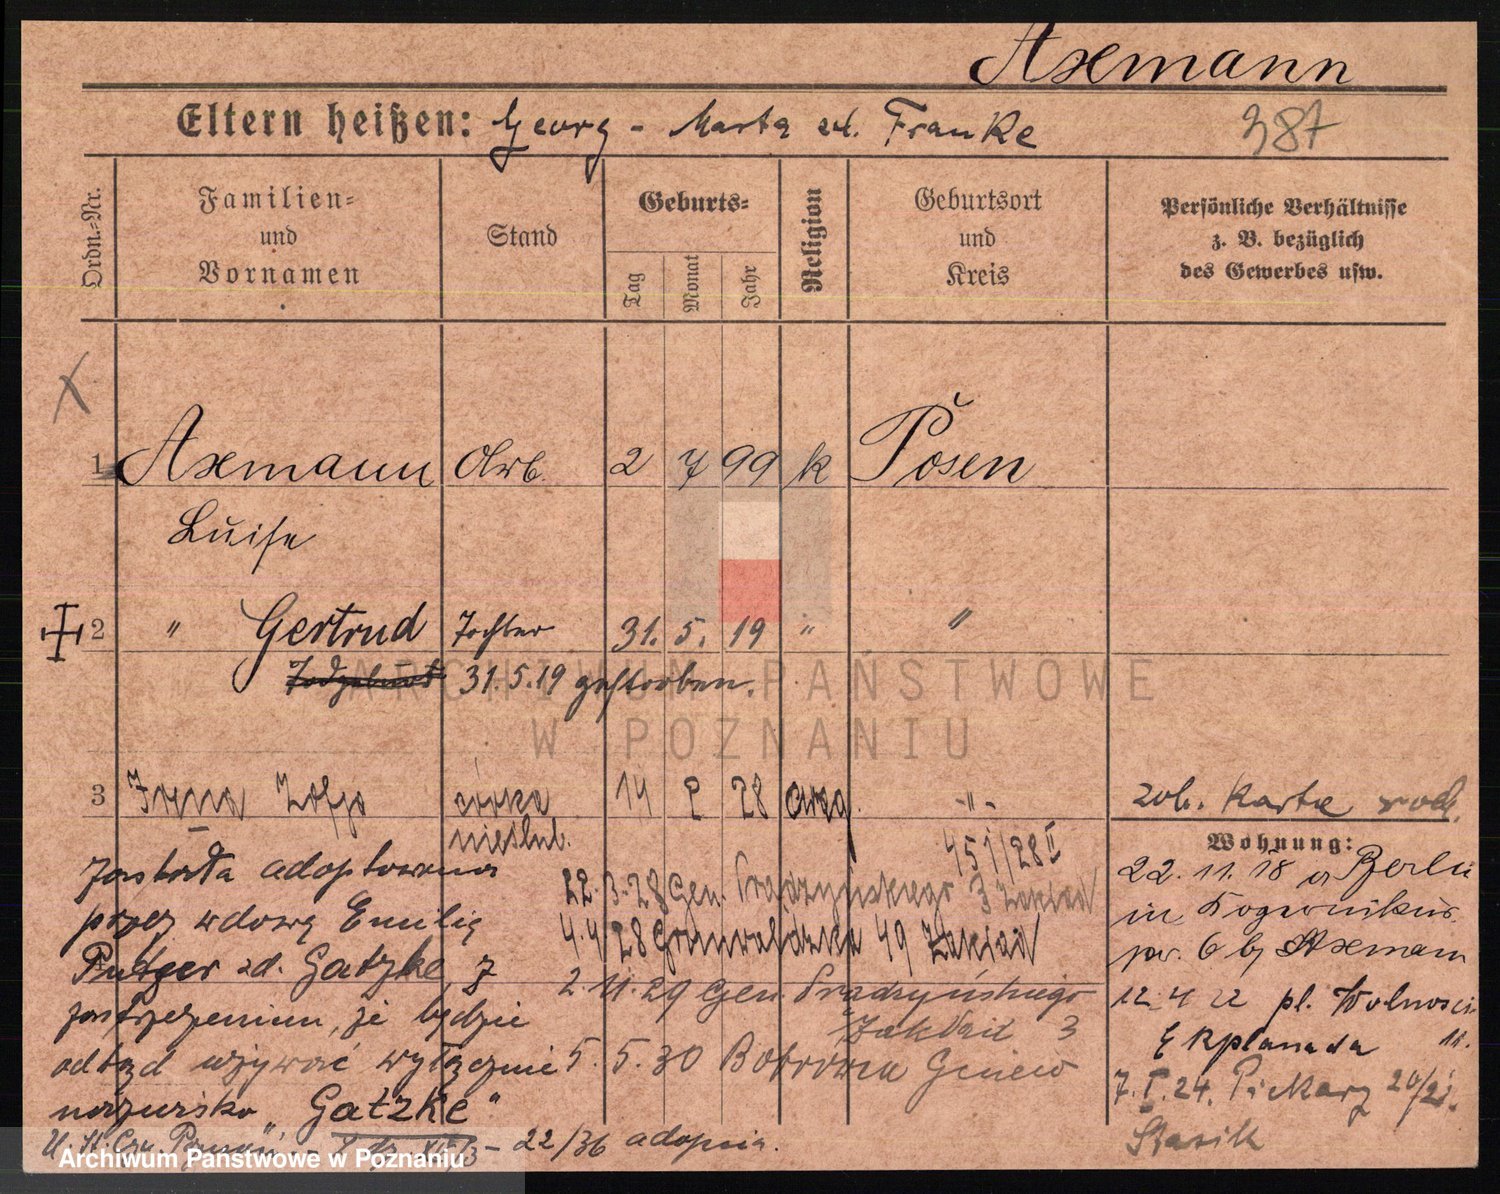 Axemann
Eltern heißen: Georg - Marta zd. Franke
387
Ordn.-Nr.
Familien-
und
Vornamen
Stand
Geburts-
Tag
Monat
Jahr
Religion
Geburtsort
und
Kreis
Persönliche Verhältnisse
z. B. bezüglich
des Gewerbes usw.
X
1 Axemann Arb. 2 7 99 k Posen
Luise
2 " Gertrud Tochter 31. 5. 19 " "
Todgeburt 31.5.19 gestorben.
3 Irena Zofja córka 14 2 28 ewag. -"-
nieślub.
zob. Karta rodz.
451/28 II
Została adoptowana
przez wdowę Emilię
Rutger zd. Gatzke, z
zastrzeżeniem, że będzie
odtąd używać wyłącznie
nazwisko "Gatzke"
22.3.28 Gen. Prądzyńskiego 3 Zakład
4.4 28 Grunwaldzka 49 Zakład
2.11.29 Gen. Prądzyńskiego
Zakład 3
5. 5. 30 Bobrowa Gniew
22/36 adopcja.
Wohnung:
22. 11. 18 v Berlin
6 b/ Axemann
12 4 22 pl. Wolności
Explanada 11.
7. I. 24. Piekary 20/21.
Stasik
ARCHIWUM PAŃSTWOWE
W POZNANIU
Archiwum Państwowe w Poznaniu